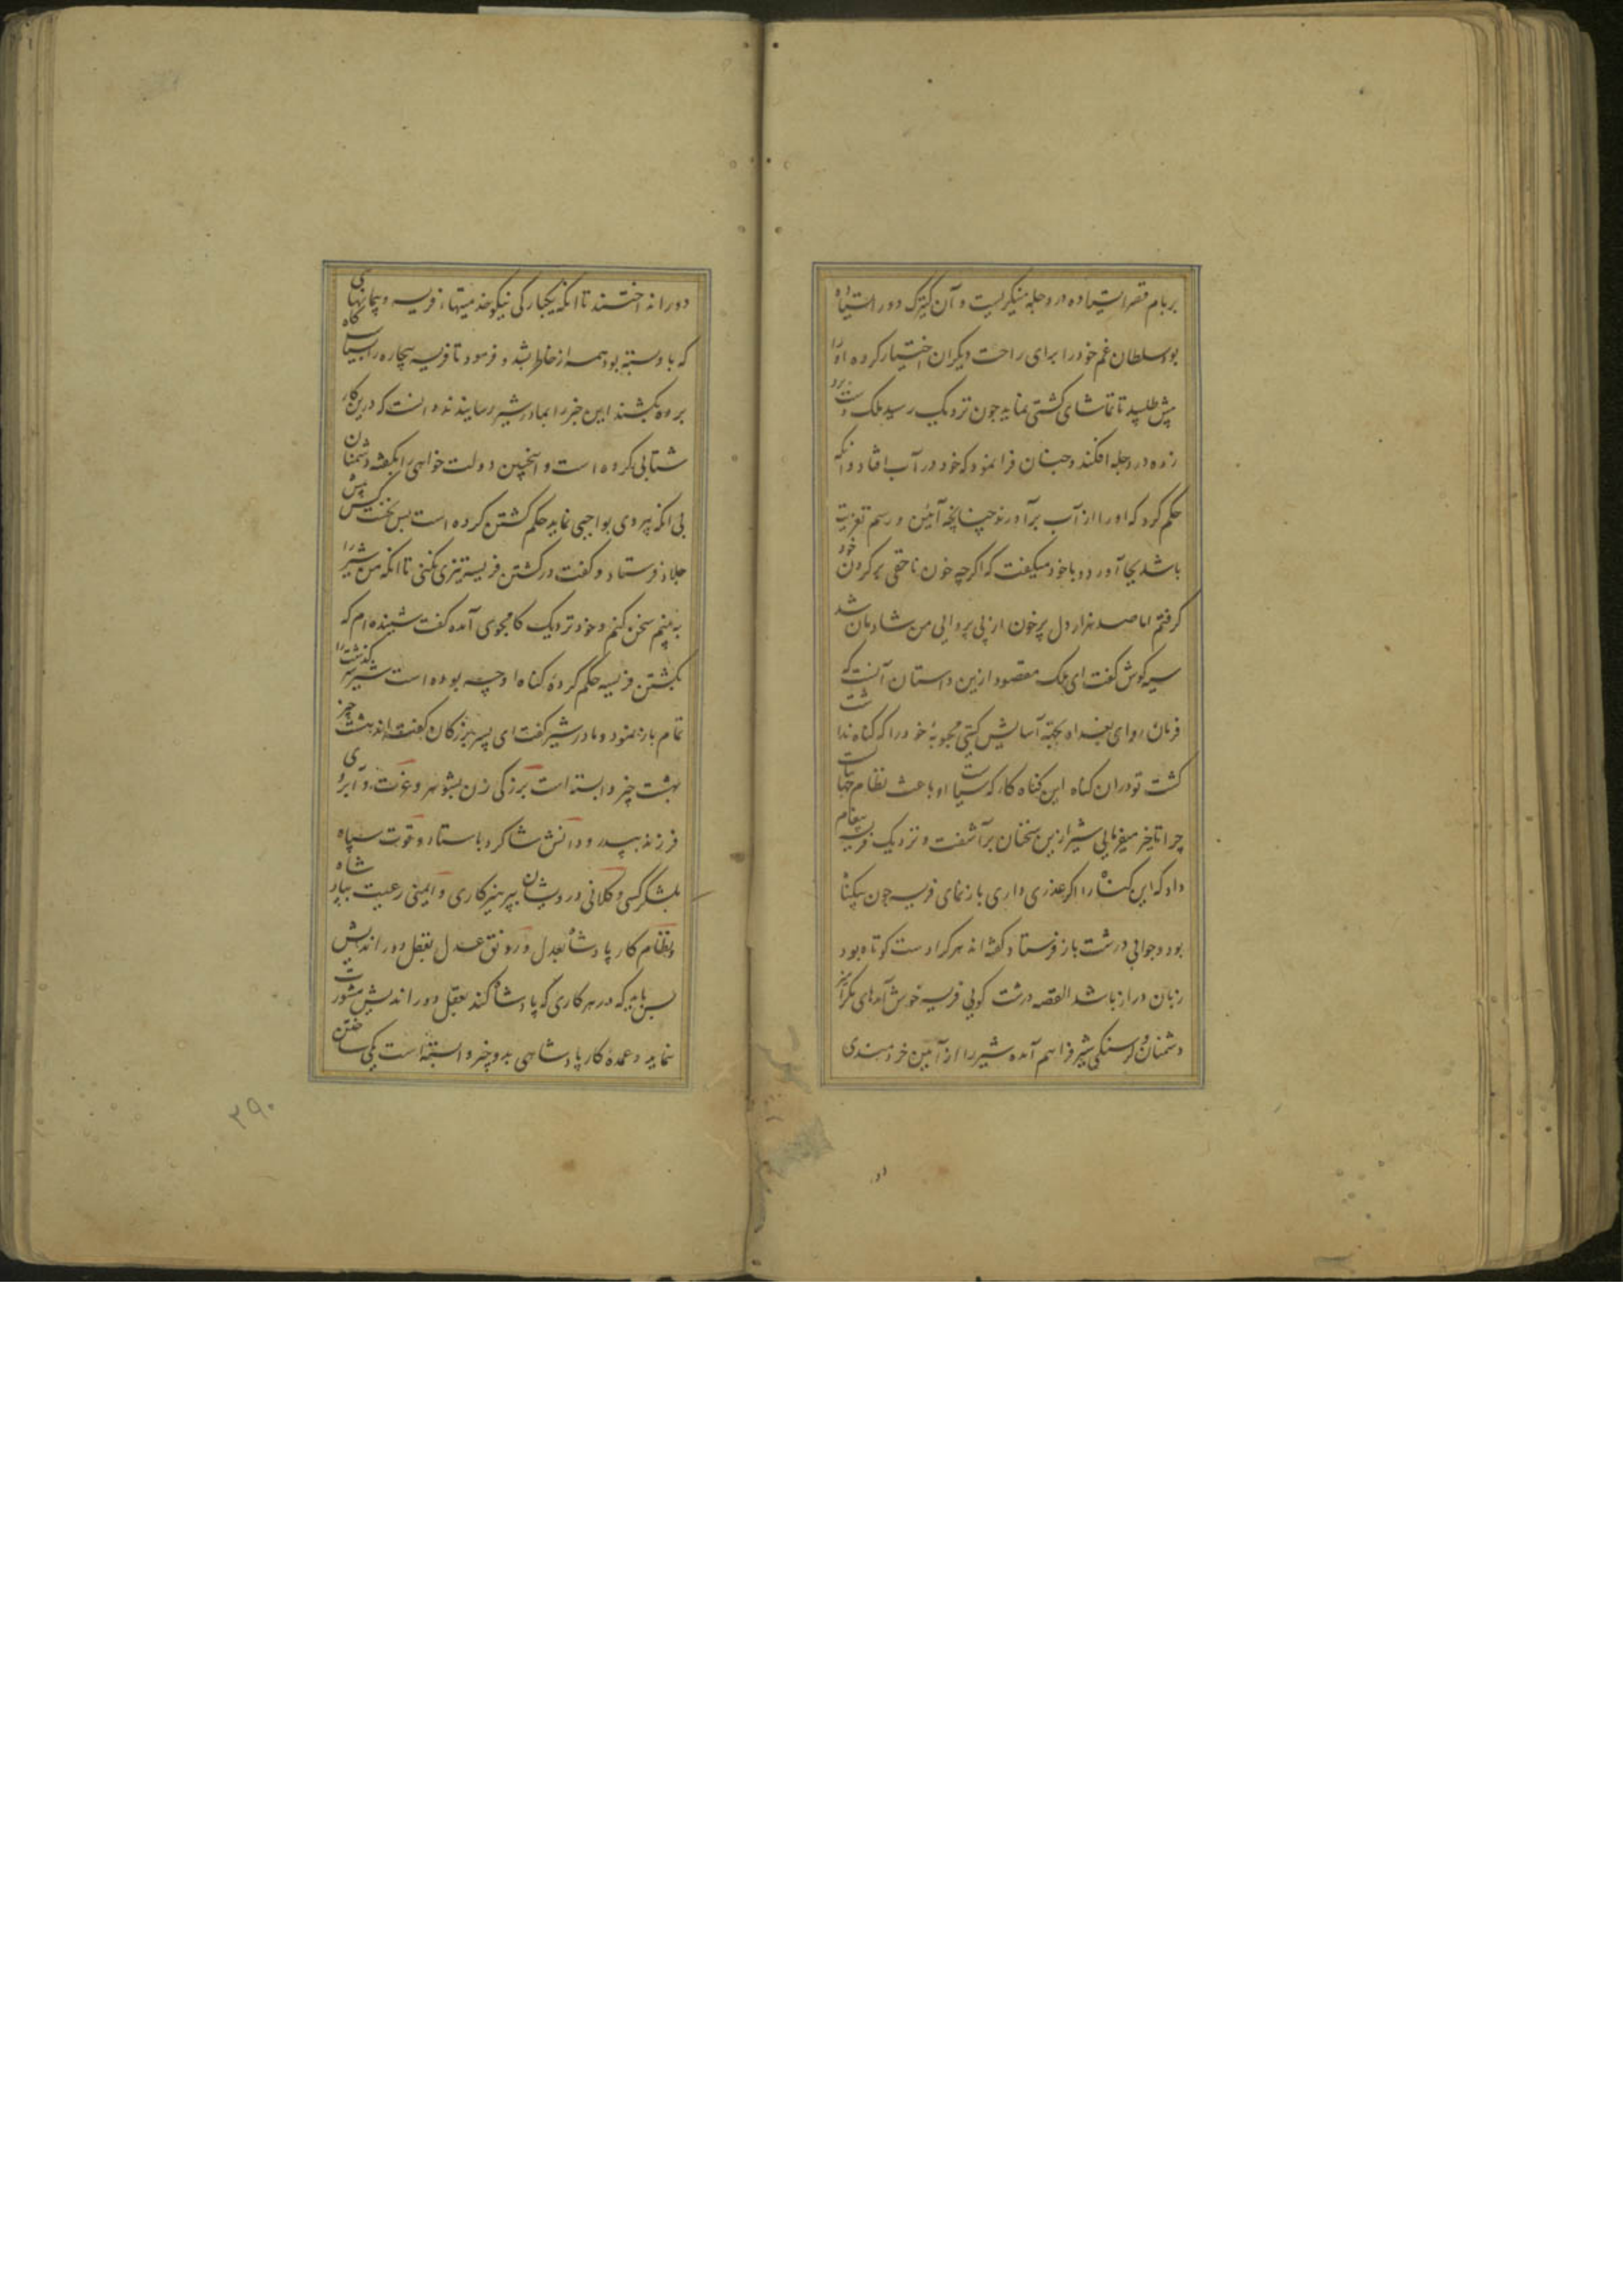 بر بام قصر ایستاده در دجله مینگریست و آن کنیزک دور ایستاده
بود سلطان غم خود را برای راحت دیگران اختیار کرده او را
پیش طلبید تا تماشای کشتی نماید چون نزدیک رسید ملک دست برد
زده در دجله افکند و چنان فرا نمود که خود در آب افتاد و آنکه
حکم کرد که او را از آب برآورند چنانچه آئین و رسم تعزیت
باشد بجا آورد و با خود میگفت که اگرچه خون ناحقی بر گردن خود
گرفتم اما صد هزار دل پرخون از بی پروایی من شادمان شد
سیه گوش گفت ای ملک مقصود ازین داستان آنست که
فرمان روای بغداد بجهة آسایش گیتی محبوبهٔ خود را که گناه نداشت
کشت تو در آن گناه این گناه کار که سیاست او باعث نظام جهانست
چرا تاخیر میفرمایی شیر ازین سخنان برآشفت و نزدیک فریسه پیغام
داد که این گناه را اگر عذری داری باز نمای فریسه چون بیگناه
بود و جوابی درشت باز فرستاد گفته اند هر کرا دست کوتاه بود
زبان دراز باشد القصه درشت گویی فریسه خوش آمدهای مکرآمیز
دشمنان و گرسنگی شیر فراهم آمده شیر را از آئین خردمندی
دور انداختند تا آنکه یکبارگی نیکو خدمتیهای فریسه و پیمانهای
که با او بسته بود همه از خاطر بشد و فرمود تا فریسه بیچاره را بسیاستگاه
برده بکشند این خبر را بمادر شیر رسانیدند دانست که درین کار
شتابی کرده است و اینچنین دولت خواهی را بگفته دشمنان
بی آنکه پیروی بواجبی نماید حکم کشتن کرده است پس نخست کس پیش
جلاد فرستاد و گفت در کشتن فریسه تیزی نکنی تا آنکه من شیر را
به بینم سخن کنم و خود نزدیک کامجوی آمده گفت شنیده ام که
بکشتن فریسه حکم کردهٔ گناه او چه بوده است شیر سرگذشت را
تمام باز نمود و مادر شیر گفت ای پسر بزرگان گفته اند هشت چیز
بهشت چیز وابسته است بزرگی زن بشوهر و عزت و آبروی
فرزند بپدر و دانش شاگرد باستاد و قوت سپاه
بلشکرکشی و کلانی درویشان بپرهیزکاری و ایمنی رعیت بپادشاه
و نظام کار پادشاه بعدل و رونق عدل بعقل دور اندیش
پس باید که در هر کاری که پادشاه کند بعقل دور اندیش مشورت
نماید و عمدهٔ کار پادشاهی بدو چیز وابسته است یکی شناختن
۳۹۰